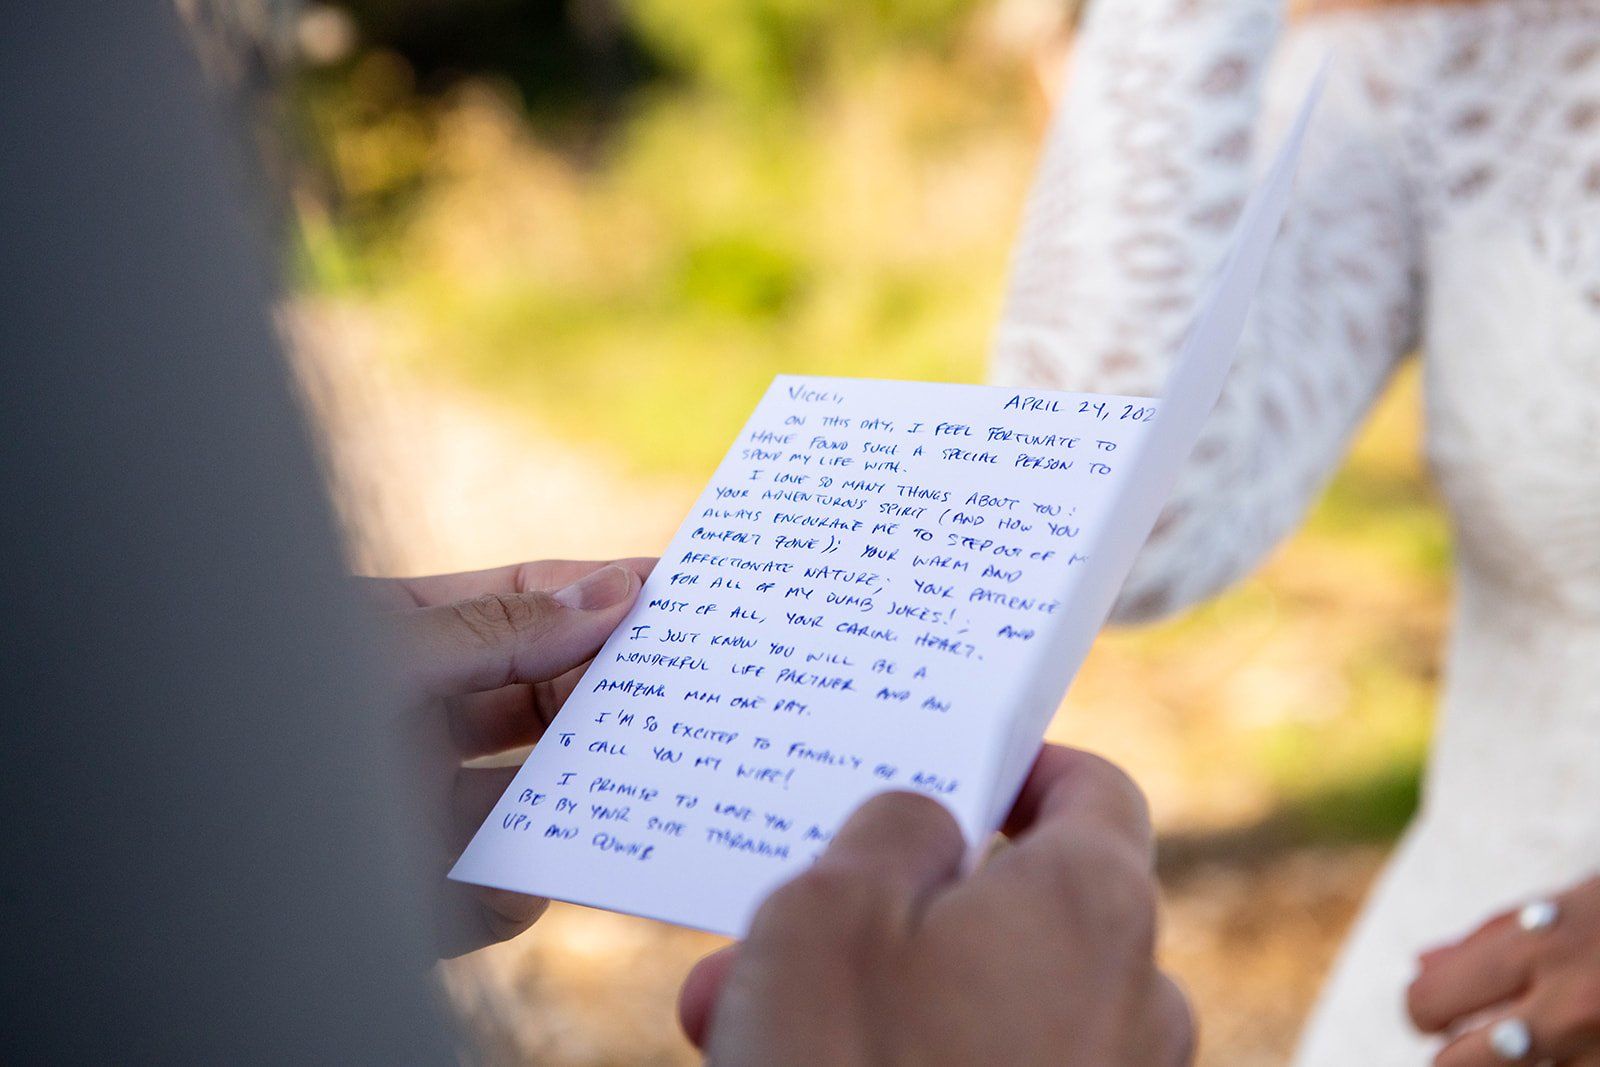 VICKI,
APRIL 24, 202
ON THIS DAY, I FEEL FORTUNATE TO
HAVE FOUND SUCH A SPECIAL PERSON TO
SPEND MY LIFE WITH.
I LOVE SO MANY THINGS ABOUT YOU:
YOUR ADVENTUROUS SPIRIT (AND HOW YOU
ALWAYS ENCOURAGE ME TO STEP OUT OF M
COMFORT ZONE); YOUR WARM AND
AFFECTIONATE NATURE; YOUR PATIENCE
FOR ALL OF MY DUMB JOKES!; AND
MOST OF ALL, YOUR CARING HEART.
I JUST KNOW YOU WILL BE A
WONDERFUL LIFE PARTNER AND AN
AMAZING MOM ONE DAY.
I'M SO EXCITED TO FINALLY BE ABLE
TO CALL YOU MY WIFE!
I PROMISE TO LOVE YOU AN
BE BY YOUR SIDE THROUGH
UPS AND DOWNS